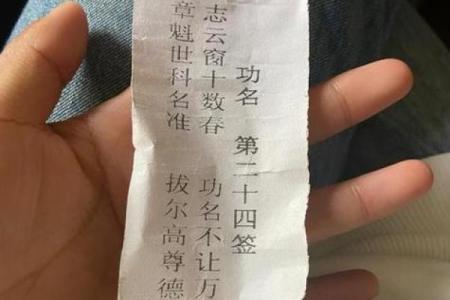 功名 第二十四签
志云窗十数春 功名不让万
章魁世科名准 拔尔高尊德